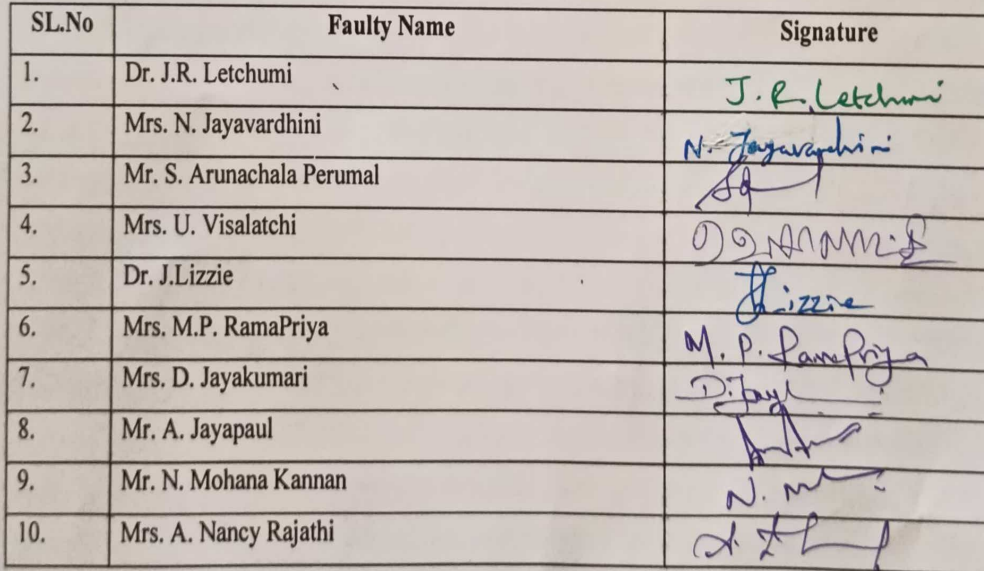 SL.No Faulty Name Signature
1. Dr. J.R. Letchumi J. R. Letchumi
2. Mrs. N. Jayavardhini N. Jayavardhini
3. Mr. S. Arunachala Perumal
4. Mrs. U. Visalatchi
5. Dr. J.Lizzie J Lizzie
6. Mrs. M.P. RamaPriya M. P. RamaPriya
7. Mrs. D. Jayakumari
8. Mr. A. Jayapaul
9. Mr. N. Mohana Kannan N.
10. Mrs. A. Nancy Rajathi A.